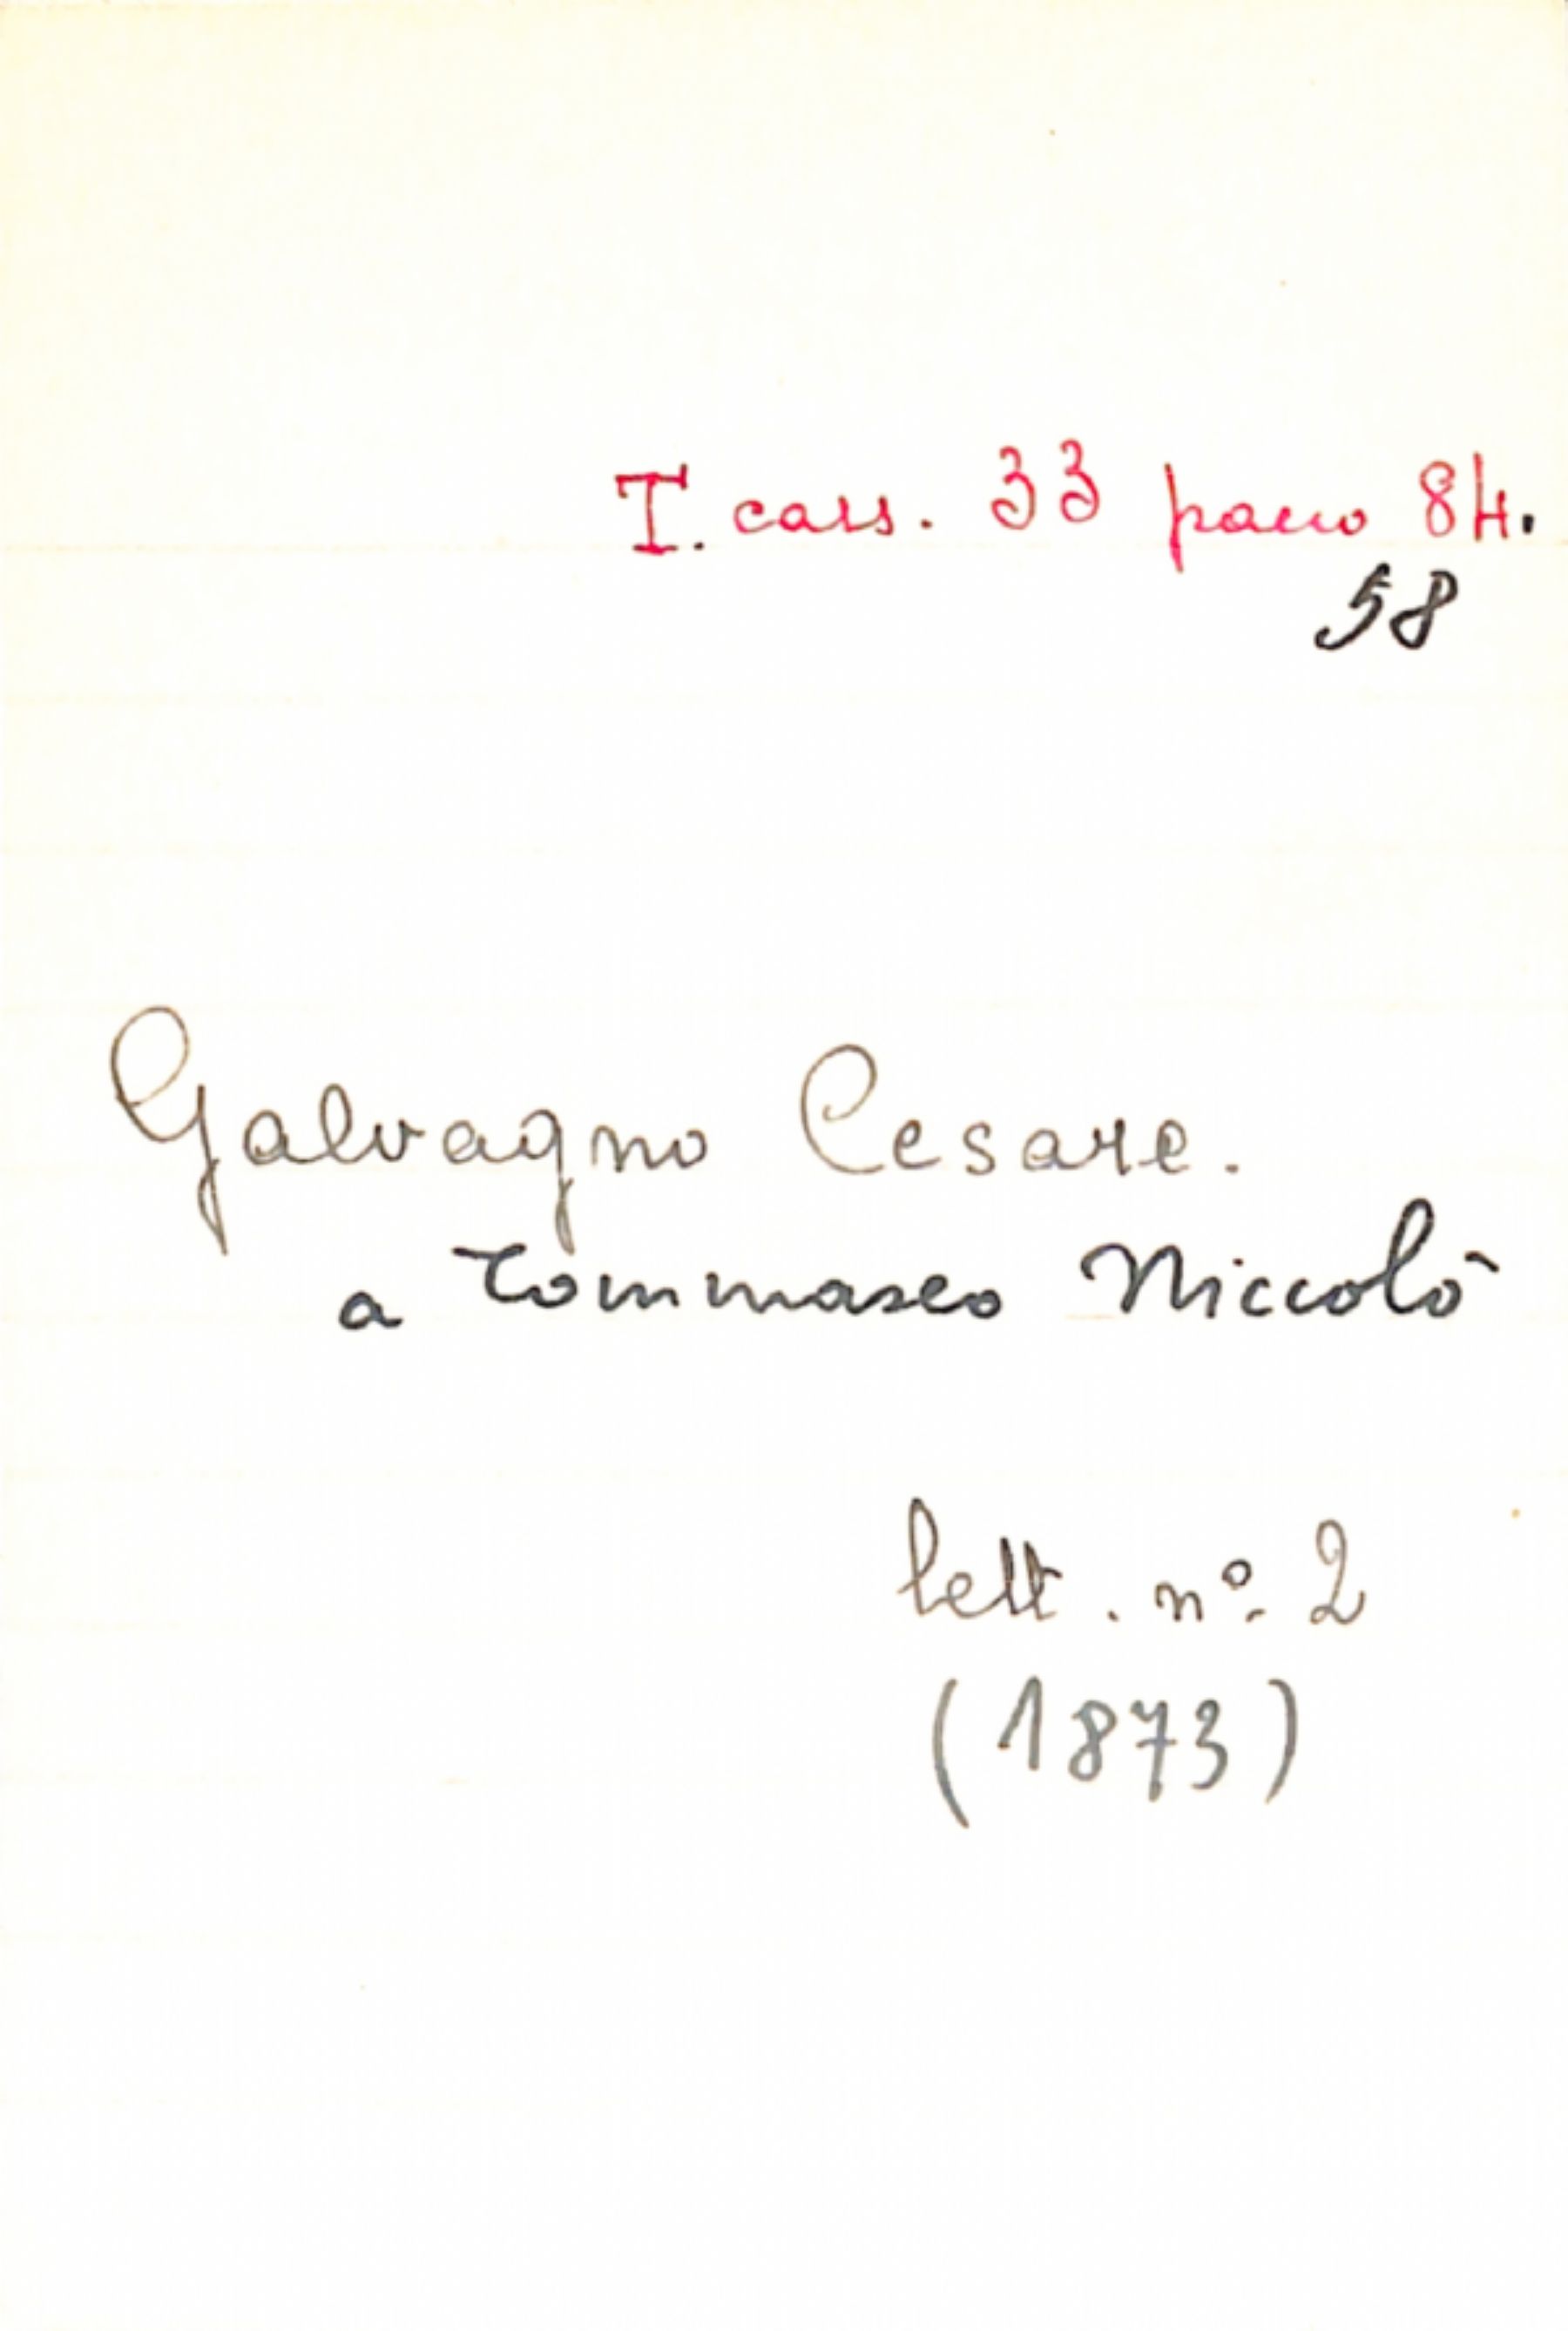 T. cass. 33 pacco 84.
58
Galvagno Cesare.
a Tommaseo Niccolò
lett. nº 2
(1873)